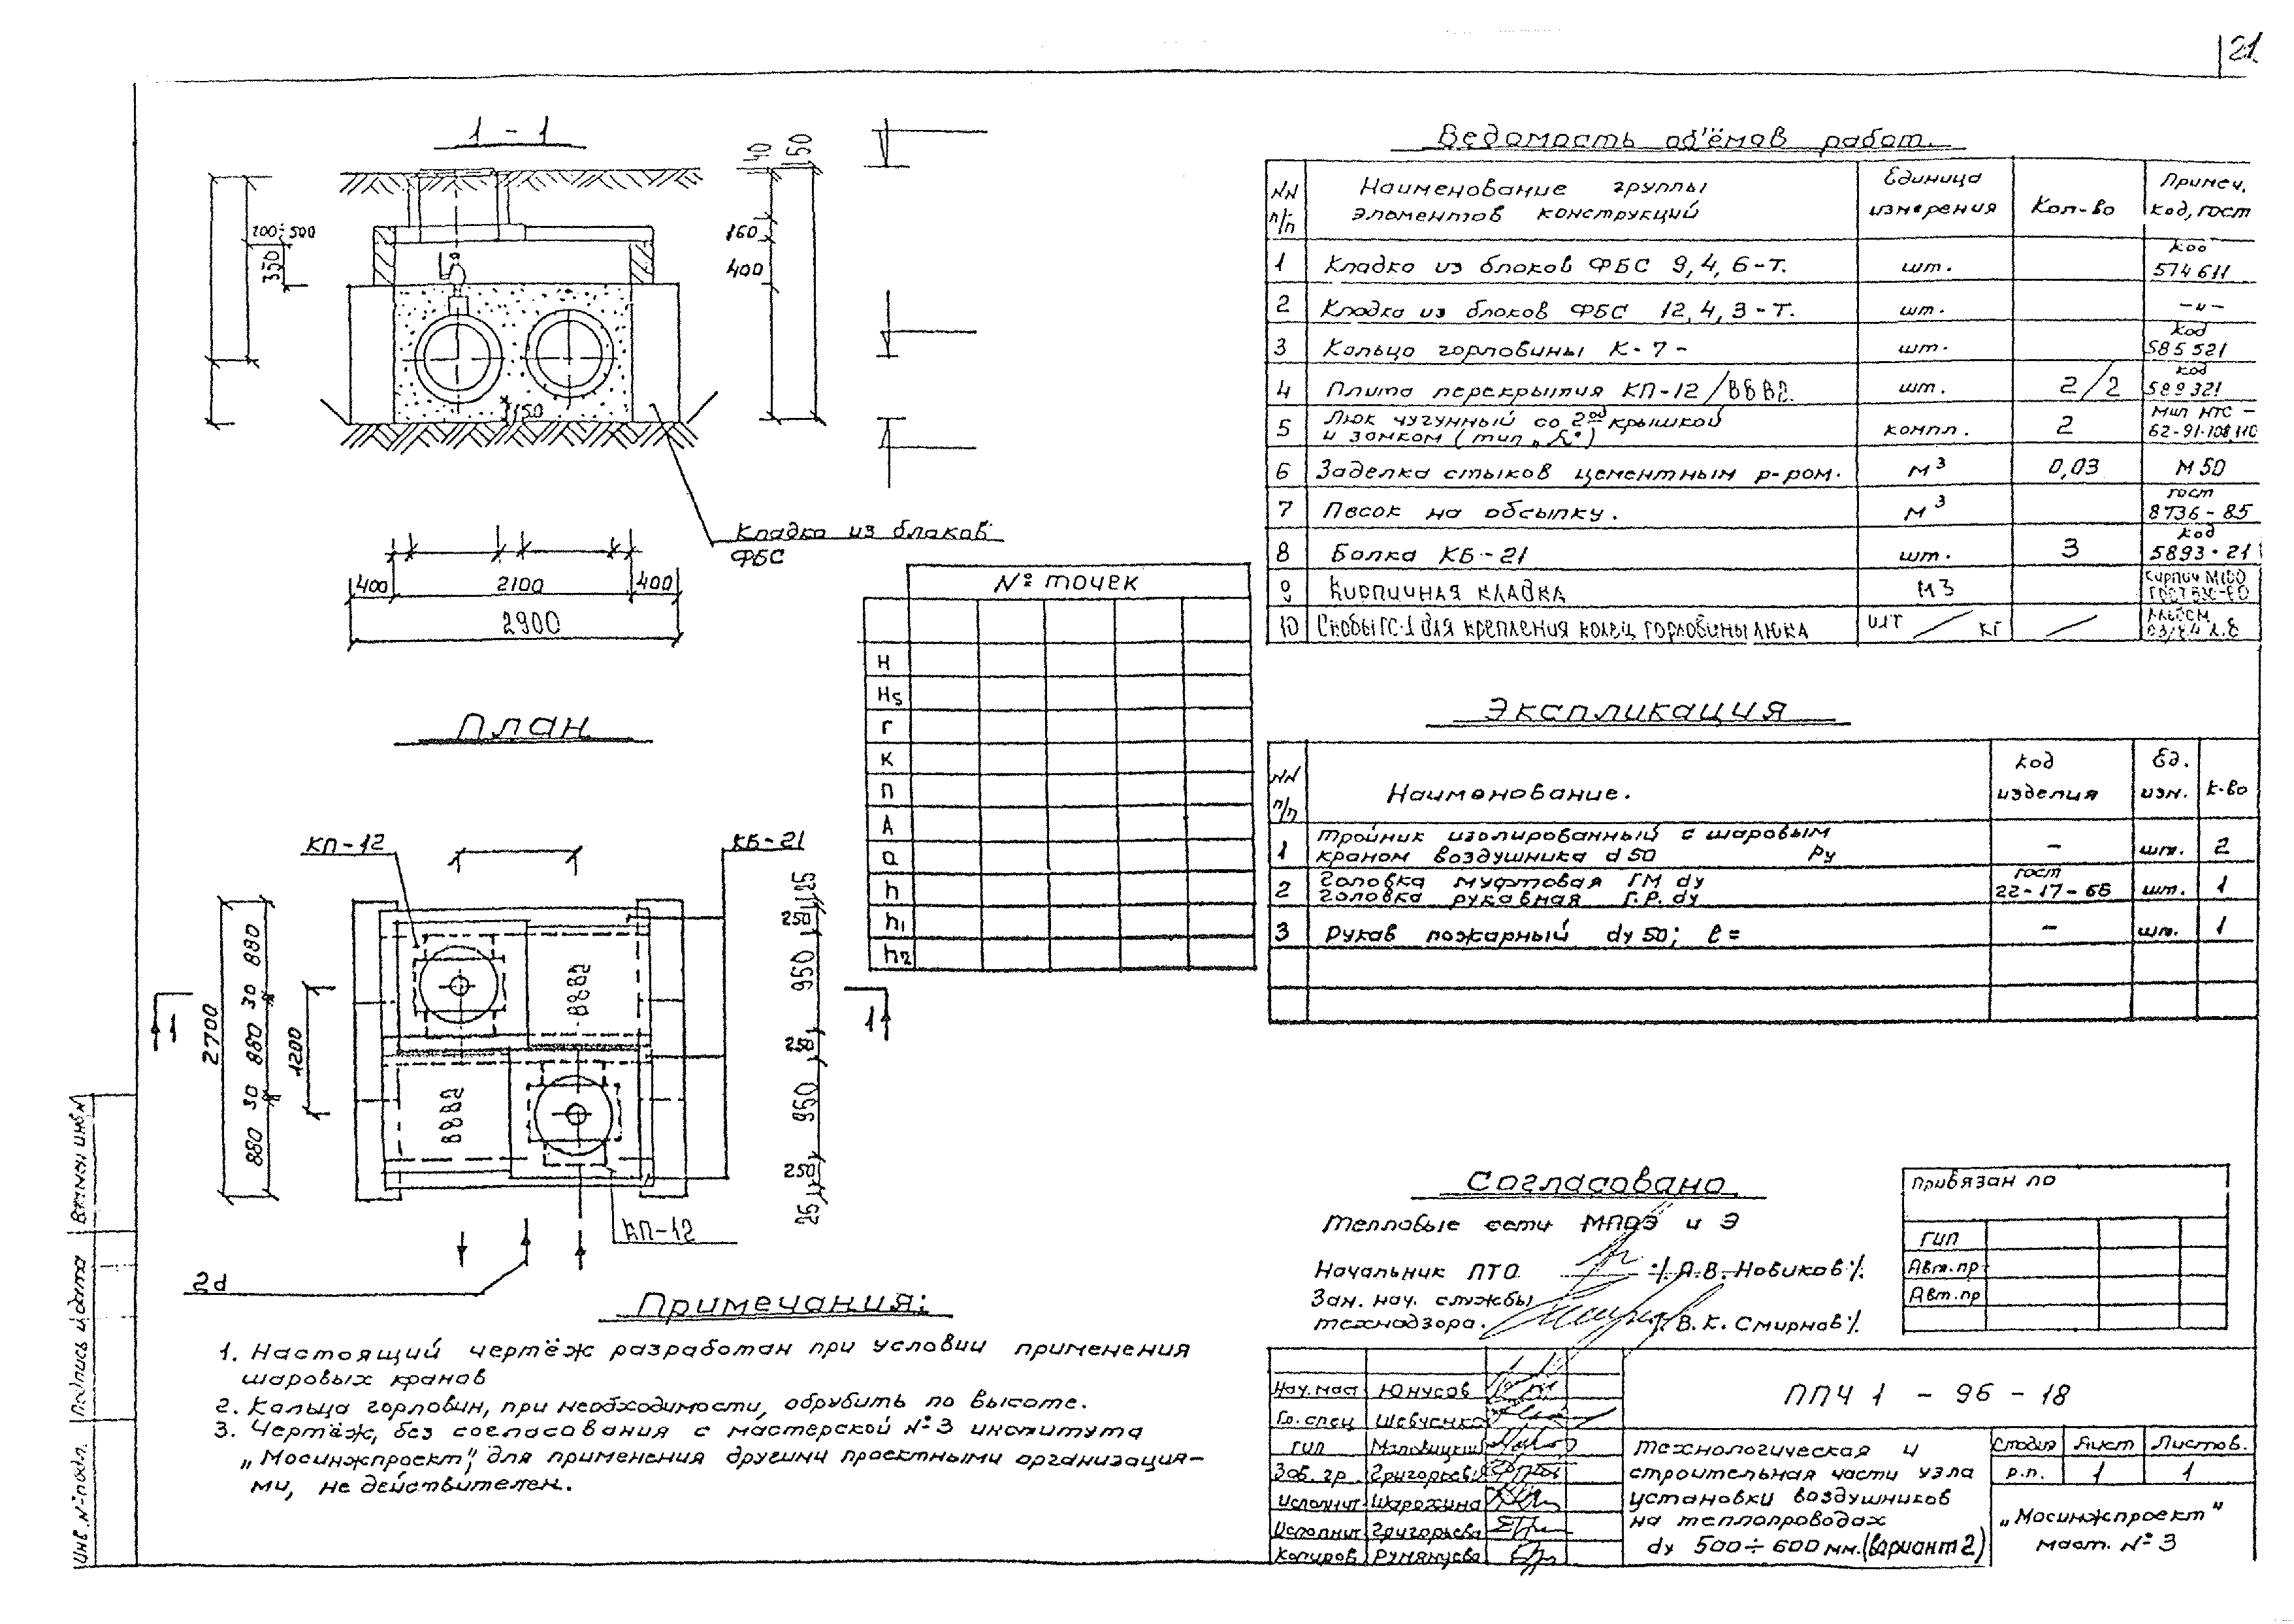 21
1 - 1
40
150
100÷500
350
160
400
150
Кладка из блоков
ФБС
400
2100
400
2900
План
КП-12
КБ-21
2700
880
30
880
30
880
1200
1
1
25
250
950
250
950
250
25
ВВВ2
ВВВ2
КП-12
2d
№ точек
H
Hs
Г
К
П
А
а
h
h1
h2
Ведомость об'ёмов работ.
NN п/п
Наименование группы элементов конструкций
Единица измерения
Кол-во
Примеч. код, гост
1 Кладка из блоков ФБС 9,4,6-Т. шт. код 574611
2 Кладка из блоков ФБС 12,4,3-Т. шт. —„—
3 Кольцо горловины К-7- шт. код 585521
4 Плита перекрытия КП-12/ВВВ2. шт. 2/2 код 589321
5 Люк чугунный со 2ой крышкой и замком (тип „Л") компл. 2 МТС - 62-91-108,110
6 Заделка стыков цементным р-ром. м3 0,03 М50
7 Песок на обсыпку. м3 гост 8736-85
8 Балка КБ-21 шт. 3 код 5893-21
9 Кирпичная кладка М3 Кирпич М100
10 Скобы ГС-1 для крепления колец горловины люка шт / кг /
Экспликация
NN п/п
Наименование.
Код изделия
Ед. изм.
К-во
1 Тройник изолированный с шаровым краном воздушника d 50 Ру - шт. 2
2 Головка муфтовая ГМ dy
Головка рукавная Г.Р. dy гост 22-17-66 шт. 1
3 Рукав пожарный dy 50; ℓ = - шт. 1
Примечания:
1. Настоящий чертёж разработан при условии применения
шаровых кранов
2. Кольца горловин, при необходимости, обрубить по высоте.
3. Чертёж, без согласования с мастерской №3 института
„Мосинжпроект", для применения другими проектными организация-
ми, не действителен.
Согласовано
Тепловые сети МПОЭ и Э
Начальник ПТО /А.В. Новиков/.
Зам. нач. службы
технадзора. /В.К. Смирнов/.
Привязан по
ГИП
Авт.пр
Авт.пр
Нач.маст Юнусов
Гл.спец Шевченко
ГИП
Зав. гр. Григорьева
Исполнит Шарохина
Исполнит Григорьева
Копиров Румянцева
ППЧ 1 - 96 - 18
Технологическая и
строительная части узла
установки воздушников
на теплопроводах
dy 500÷600мм.(вариант 2)
Стадия Лист Листов.
р.п. 1 1
„Мосинжпроект"
маст. №3
Инв.№подл.
Подпись и дата
Взамен инв.№